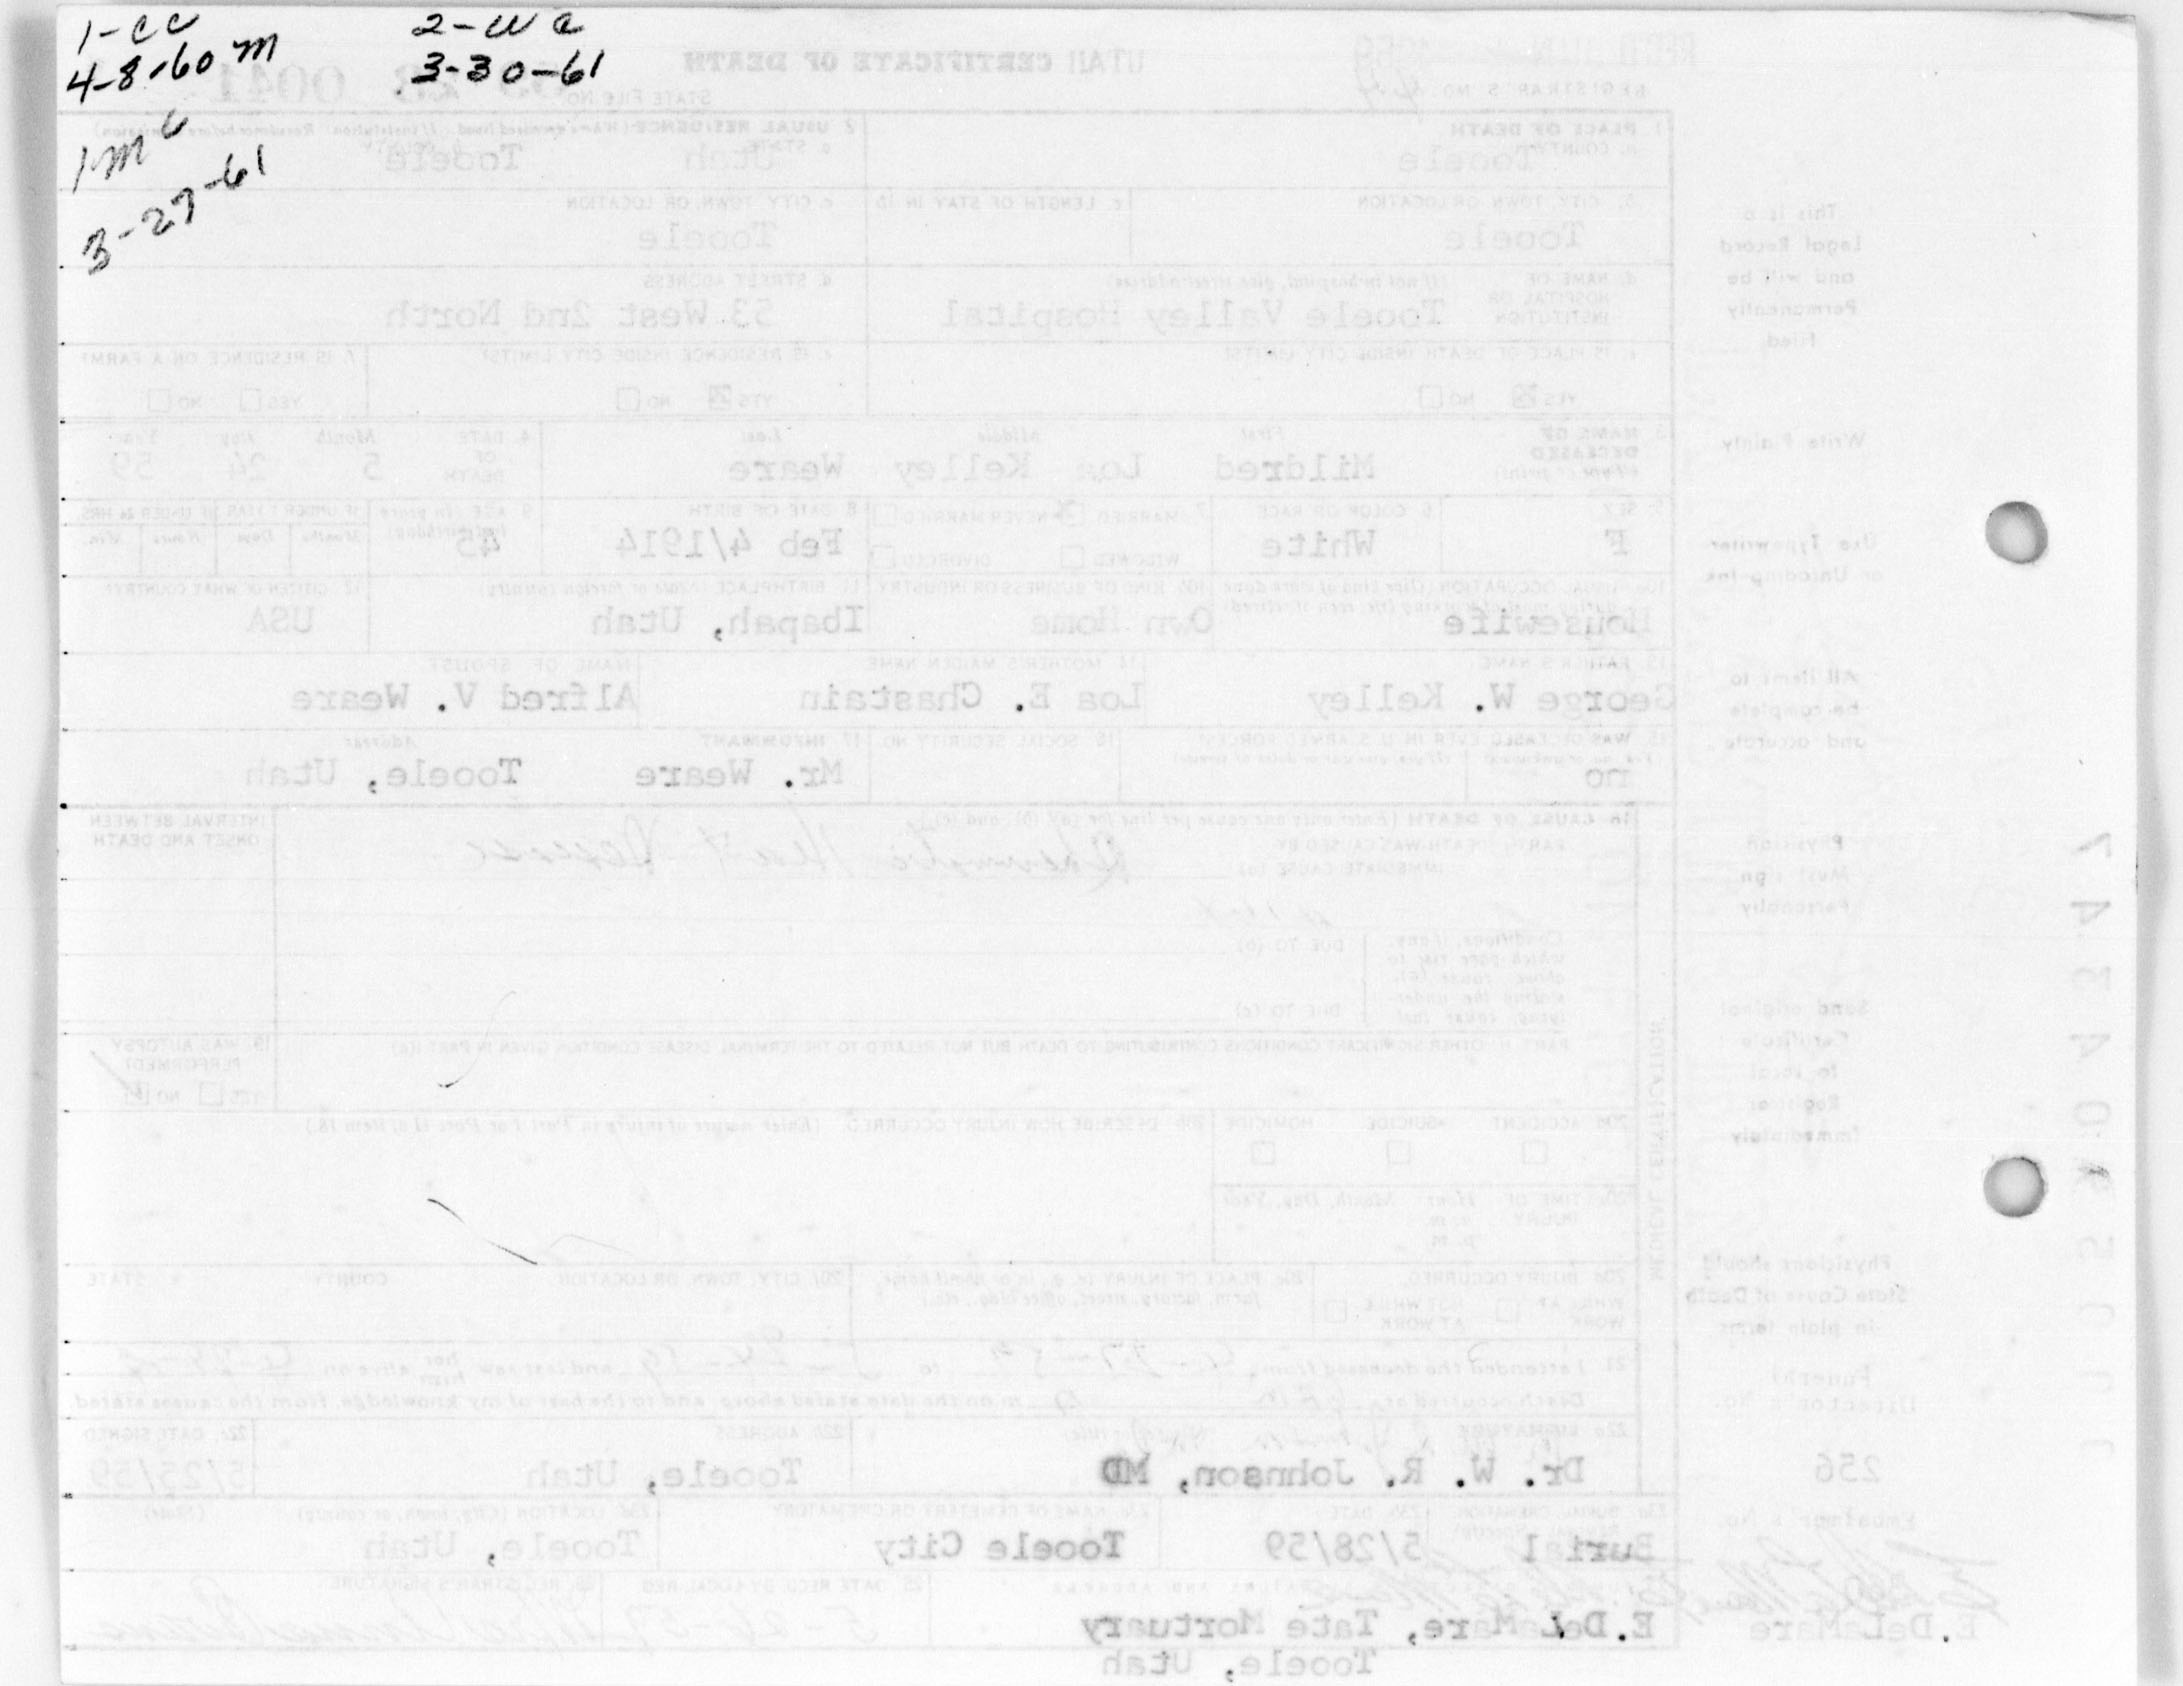 1-CC
4-8-60 M
2-WC
3-30-61
1-MC
3-27-61
UTAH CERTIFICATE OF DEATH
STATE FILE NO.
REGISTRAR'S NO.
1. PLACE OF DEATH
a. COUNTY
Tooele
2. USUAL RESIDENCE
a. STATE
Utah
Tooele
b. CITY, TOWN, OR LOCATION
Tooele
c. LENGTH OF STAY IN 1b
c. CITY, TOWN, OR LOCATION
Tooele
d. NAME OF HOSPITAL OR INSTITUTION (If not in hospital, give street address)
Tooele Valley Hospital
d. STREET ADDRESS
53 West 2nd North
e. IS PLACE OF DEATH INSIDE CITY LIMITS?
YES NO
e. IS RESIDENCE INSIDE CITY LIMITS?
YES NO
f. IS RESIDENCE ON A FARM?
YES NO
3. NAME OF DECEASED
First Middle Last
Mildred Loa Kelley Weare
4. DATE OF DEATH
Month Day Year
5 24 59
5. SEX
F
6. COLOR OR RACE
White
7. MARRIED NEVER MARRIED
WIDOWED DIVORCED
8. DATE OF BIRTH
Feb 4/1914
9. AGE
45
Housewife
10b. KIND OF BUSINESS OR INDUSTRY
Own Home
11. BIRTHPLACE (State or foreign country)
Ibapah, Utah
12. CITIZEN OF WHAT COUNTRY?
USA
13. FATHER'S NAME
George W. Kelley
14. MOTHER'S MAIDEN NAME
Loa E. Chastain
NAME OF SPOUSE
Alfred V. Weare
15. WAS DECEASED EVER IN U. S. ARMED FORCES?
no
16. SOCIAL SECURITY NO.
17. INFORMANT Address
Mr. Weare Tooele, Utah
18. CAUSE OF DEATH (Enter only one cause per line for (a), (b), and (c).)
PART I. DEATH WAS CAUSED BY
IMMEDIATE CAUSE (a)
Rheumatic Heart Disease
INTERVAL BETWEEN ONSET AND DEATH
DUE TO (b)
DUE TO (c)
PART II. OTHER SIGNIFICANT CONDITIONS CONTRIBUTING TO DEATH BUT NOT RELATED TO THE TERMINAL DISEASE CONDITION GIVEN IN PART I(a)
19. WAS AUTOPSY PERFORMED?
YES NO
20a. ACCIDENT SUICIDE HOMICIDE
20b. DESCRIBE HOW INJURY OCCURRED (Enter nature of injury in Part I or Part II of item 18.)
20c. TIME OF INJURY Hour Month, Day, Year
a. m.
p. m.
20d. INJURY OCCURRED
WHILE AT WORK NOT WHILE AT WORK
20f. CITY, TOWN, OR LOCATION COUNTY STATE
21. I attended the deceased from
and last saw her him alive on
m on the date stated above, and to the best of my knowledge, from the causes stated.
22a. SIGNATURE
Dr. W. R. Johnson, MD
22b. ADDRESS
Tooele, Utah
22c. DATE SIGNED
5/25/59
23b. DATE
Burial 5/28/59
23c. NAME OF CEMETERY OR CREMATORY
Tooele City
23d. LOCATION (City, town, or county) (State)
Tooele, Utah
25. DATE RECD BY LOCAL REG.
REGISTRAR'S SIGNATURE
E.DeLaMare, Tate Mortuary
Tooele, Utah
MEDICAL CERTIFICATION
This is a
Legal Record
and will be
Permanently
Filed
Write Plainly
Use Typewriter
or Unfading Ink
All items to
be complete
and accurate
Physician
Must sign
Personally
Send original
Certificate
to local
Registrar
Immediately
Physicians should
State Cause of Death
in plain terms
Funeral
Director's No.
256
Embalmer's No.
E.DeLaMare